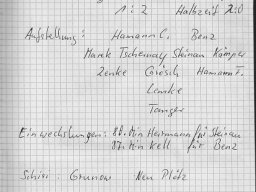 1 : 2 Halbzeit 2:0
Aufstellung: Hamann C. Benz
Marek Tschernay Steinau Kämper
Zenke Görsch Hamann F.
Lemke
Tanger
Einwechslungen: 80. Min Herrmann für Steinau
87. Min Kell für Benz
Schiri: Grunow Neu Plötz